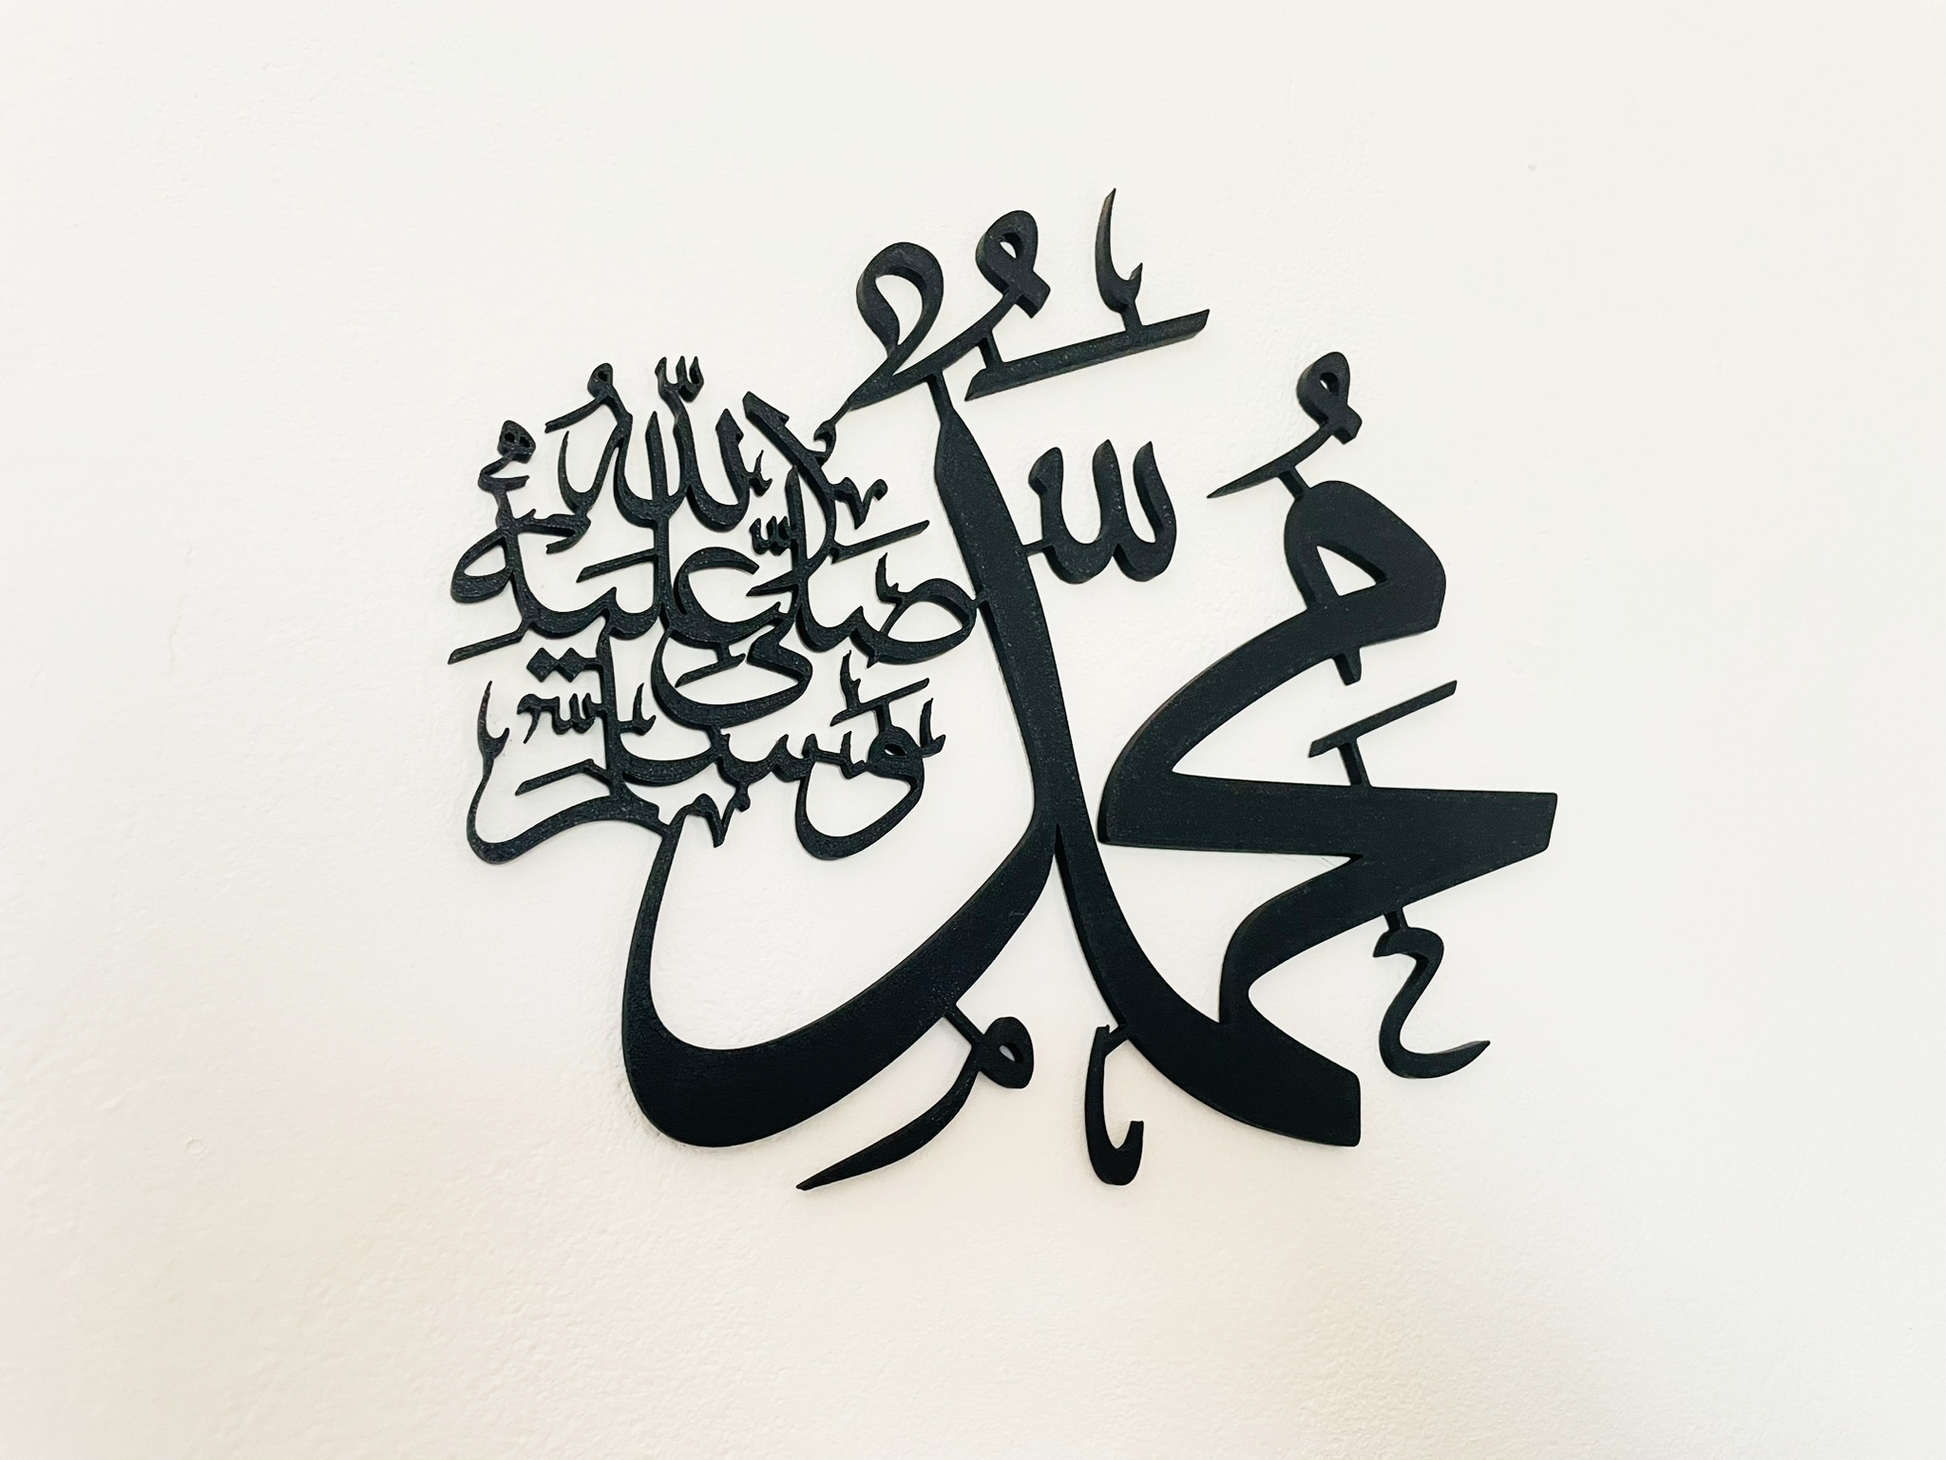 مُحَمَّدٌ
صَلَّى اللّٰهُ عَلَيْهِ
وَسَلَّمَ